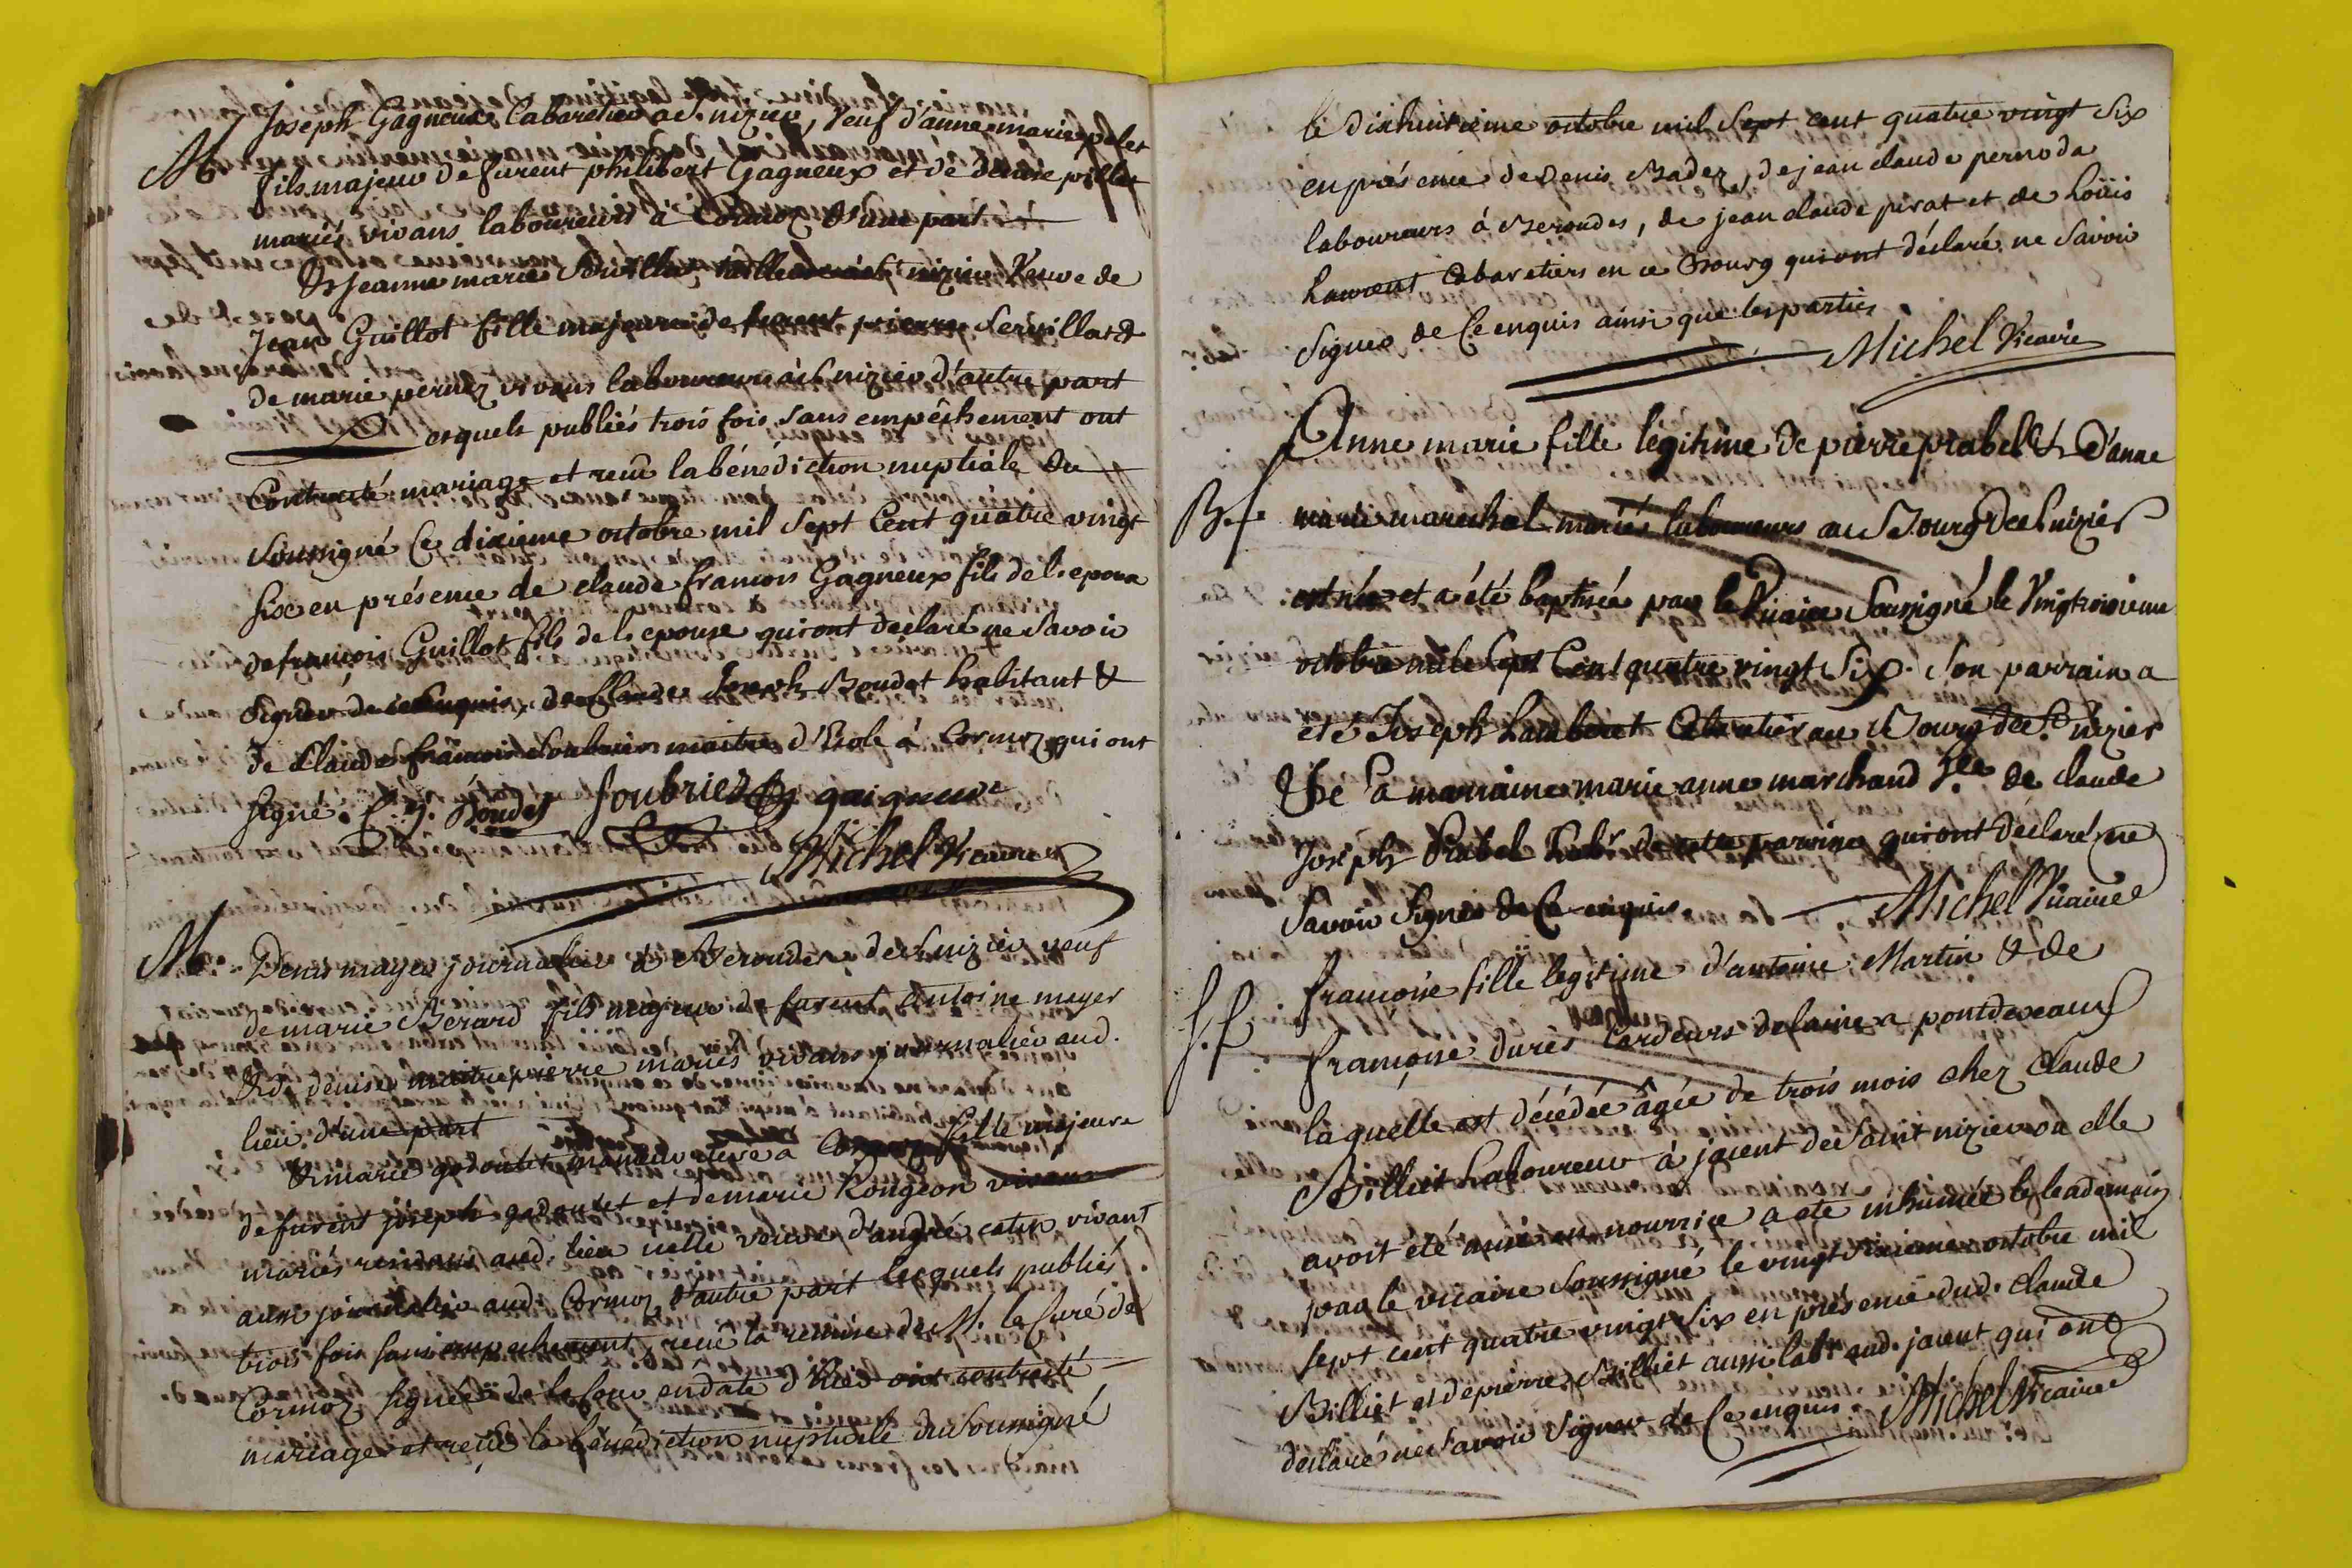 M. Joseph Gagneux Cabaretier a St. nizier, Veuf d'anne marie pelet
fils majeur de furent philibert Gagneux et de denise pillet
mariés vivans laboureurs a Cormoz d'une part
& jeanne marie Servillat St nizier Veuve de
Jean Guillot fille majeure de furent pierre Servillat &
de marie pernez vivans laboureurs a St nizier d'autre part
Lesquels publiés trois fois sans empêchement ont
Contracté mariage et reçu la bénédiction nuptiale du
soussigné Ce dixieme octobre mil Sept Cent quatre vingt
six en présence de claude françois Gagneux fils de l'epoux
de françois Guillot fils de l'epouse qui ont declaré ne savoir
signer de ce enquis, de Claude Joseph Boudet habitant &
de Claude françois Soubrier maitre d'Ecole à Cormoz qui ont
signé. C. J. Boudet Soubrier gaigneux
Michel Vicaire
M. Denis mayer journalier à Beroudes de St nizier veuf
de marie Berard fils majeur de furent Antoine mayer
& de denise maitrepierre mariés vivans journalier aud.
lieu d'une part
& marie gadoulet a Cormoz fille majeure
de furent joseph gadoulet et de marie Rongeon vivans
mariés aud. lieu veuve d'andré catin vivant
aussi journalier aud. Cormoz d'autre part lesquels publiés
trois fois sans empechement, reçu la remise de M. le Curé de
Cormoz signée de la Cour en date d'hier ont contracté
mariage et reçu la bénédiction nuptiale du Soussigné
le dixhuitieme octobre mil Sept cent quatre vingt six
en présence de Denis Badez, de jean claude pernoda
laboureurs à Beroudes, de jean claude pirat et de Loüis
Laurent Cabaretiers en ce Bourg qui ont déclaré ne Savoir
Signer de Ce enquis ainsi que les parties
Michel Vicaire
Anne marie fille légitime de pierre prabel & d'anne
B. f. marie marechal mariés laboureurs au Bourg de St nizier
est née et a été baptisée par le Vicaire Soussigné le Vingtroisieme
octobre mil Sept Cent quatre vingt Six. Son parrain a
été Joseph Lambert Cabaretier au Bourg de St. nizier
& Sa marraine marie anne marchand fe. de claude
Joseph Prabel Labr. de cette paroisse qui ont déclaré ne
Savoir Signer de Ce enquis. Michel Vicaire
S. f. françoise fille legitime d'antoine Martin & de
françoise durés Cardeurs de laine a pontdevaux
laquelle est décédée âgée de trois mois chez Claude
Billiet Laboureur à jaient de Saint nizier ou elle
avoit été mise en nourrice a eté inhumée le lendemain
par le vicaire Soussigné le vingt sixieme octobre mil
sept cent quatre vingt six en présence dud. Claude
Billiet et de pierre Billiet aussi labr. aud. jaient qui ont
déclaré ne Savoir Signer de Ce enquis. Michel Vicaire